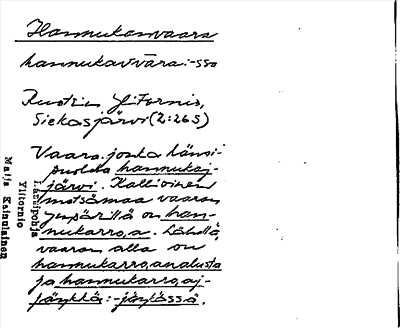 Hannukanvaara
hannukavvāra:-sso
Ruotin Ylitornio,
Siekasjärvi (2:265)
Vaara, jonka länsi-
puolella hannukaj-
järvi. Kallioinen
metsämaa vaaran
ympärillä on han-
nukarro,a. Lähellä
vaaran alla on
hannukarro,analusta
ja hannukarro,aj-
jänkkä:-jänkässä.
Länsipohja
Ylitornio
Maija Kainulainen